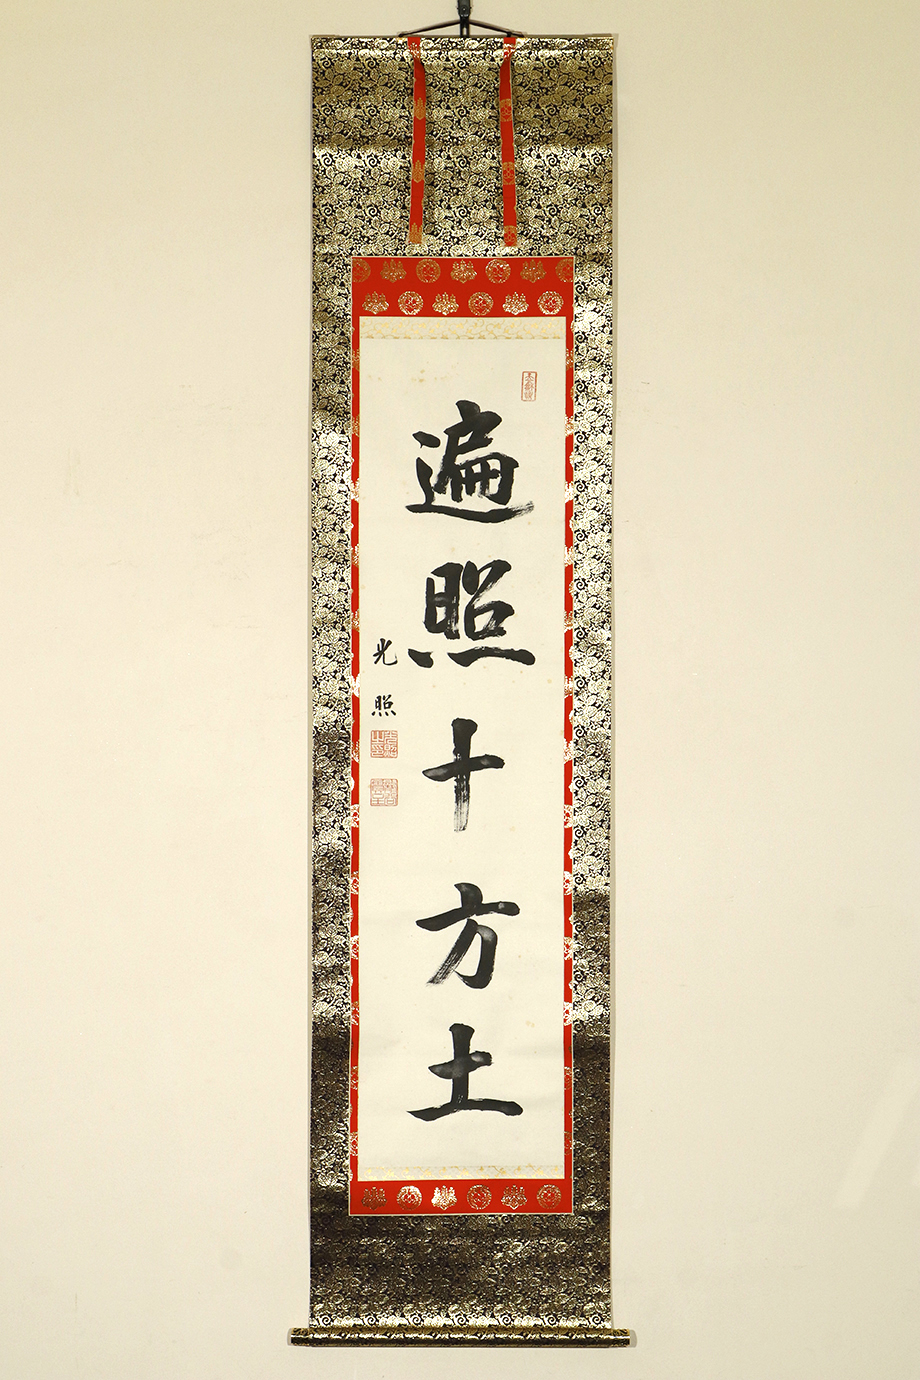 遍照十方土
光照